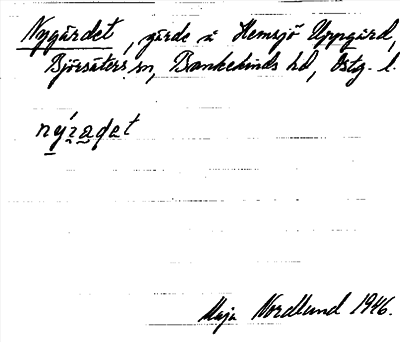 Nygärdet, gärde å Hemsjö Uppgård,
Björsäters sn, Bankekinds hd, Östg. l.
nýzadet
Maja Nordlund 1946.